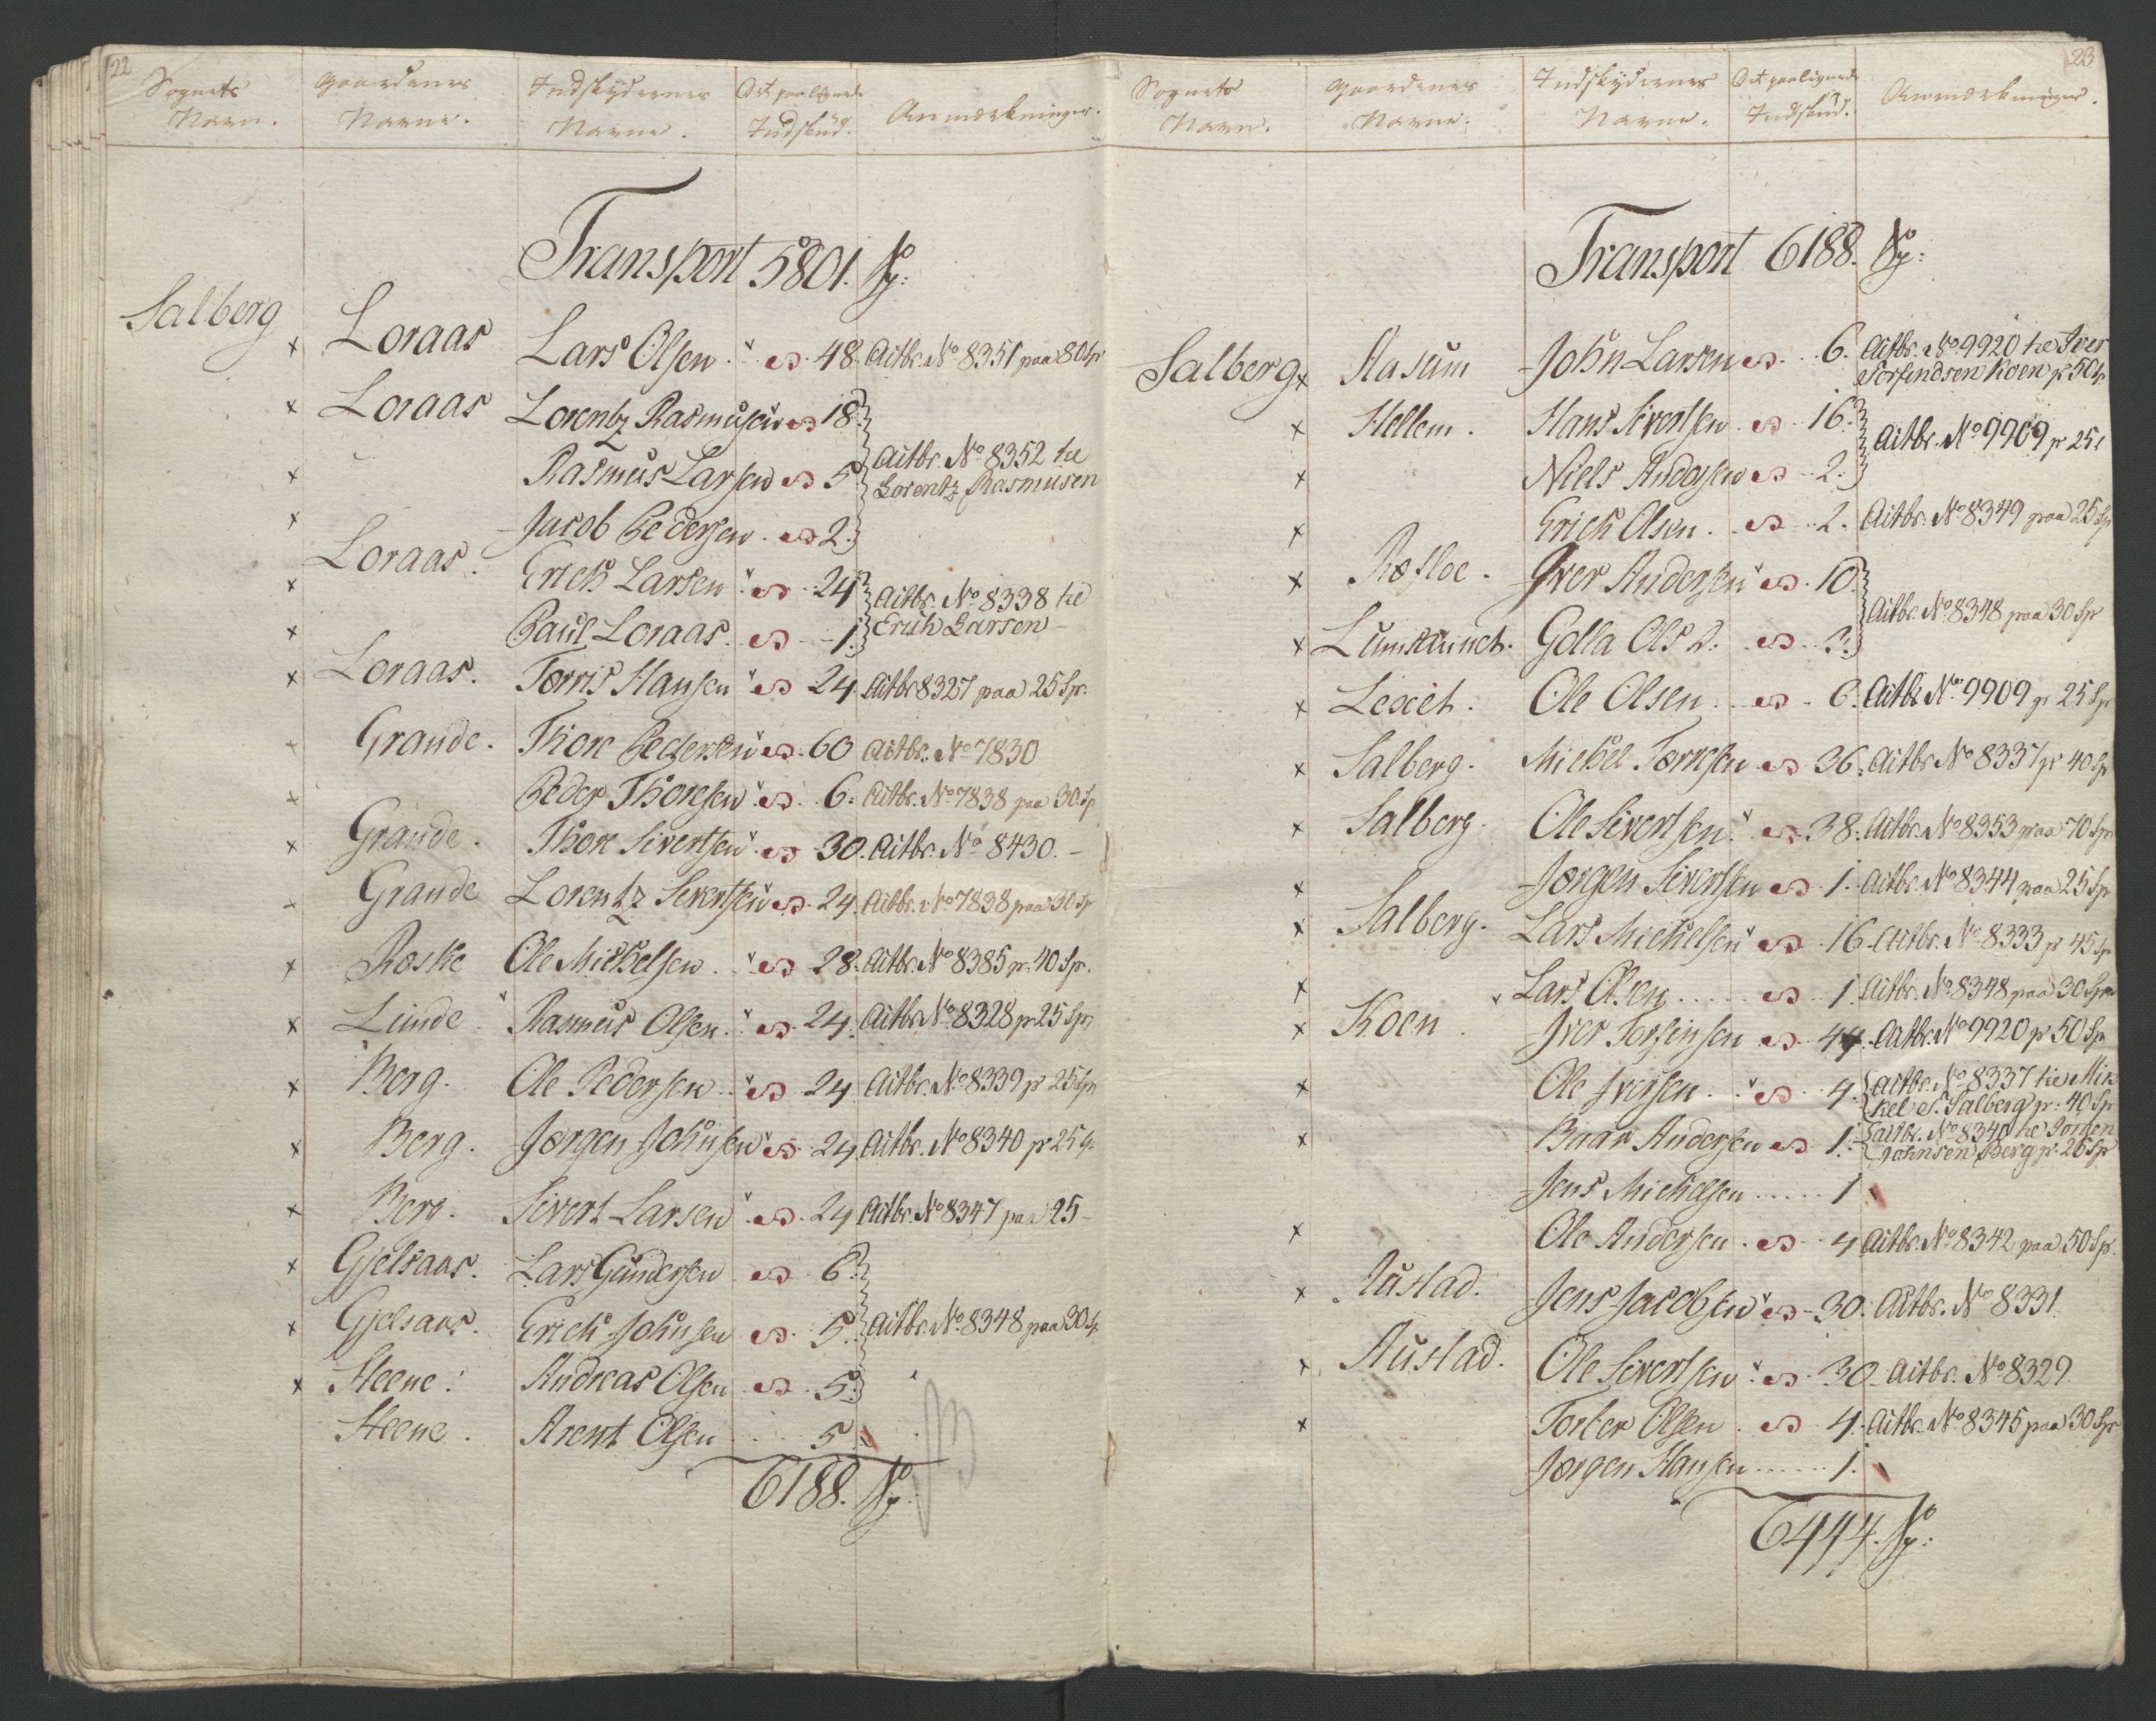 22
Sognets Navn. Gaardenes Navne. Indskydernes Navne. Det paalignede Indskud. Anmærkninger.
Transport 5801. Sp:
Salberg x Loraas Lars Olsen. 48. Actbr. No 8351 paa 80 Sp
x Loraas Lorentz Rasmusen 18.
x Rasmus Larsen 5 Actbr. No 8352 til Lorentz Rasmusen
x Jacob Pedersen. 2.
x Loraas. Erich Larsen 24 Actbr. No 8338 til Erich Larsen
x Paul Loraas. 1.
x Loraas. Torris Hansen 24. Actbr 8327 paa 25 Sp.
x Grande. Thore Pedersen 60 Actbr. No 7830
x Peder Thoresen 6. Actbr. No 7838 paa 30 Sp
x Grande. Thore Sivertsen 30. Actbr. No 8430.
Grande Lorentz Sivertsen 24. Actbr. No 7838 paa 30 Sp
x Roske Ole Michelsen. 28. Actbr. No 8385 p. 40 Sp.
x Lunde Rasmus Olsen. 24. Actbr No 8328 p 25 Sp
x Berg. Ole Pedersen 24. Actbr. No 8339 p 25 Sp
x Berg. Jørgen Johnsen 24. Actbr. No 8340 p 25 Sp
x Berg. Sivert Larsen 24 Actbr. No 8347 paa 25
x Gjelsaas. Lars Gundersen 6.
x Gjelsaas. Erich Johnsen 5. Actbr. No 8348 paa 30 Sp
x Steene. Andreas Olsen 5.
Steene. Arent Olsen 5
6188. Sp:
23
Sognets Navn. Gaardenes Navne. Indskydernes Navne. Det paalignede Indskud. Anmærkninger.
Transport 6188. Sp:
Salberg x Aasum John Larsen 6. Actbr. No 9920 til Iver
Torfindsen Koen p 50 Sp
x Hellem. Hans Sivertsen 16.
Actbr. No 9909 p 25
x Niels Andersen 2.
x Erich Olsen. 2. Actbr. No 8349 paa 25 Sp
x Rosloe. Iver Andersen 10.
Actbr. No 8348 paa 30 Sp
x Golla Ols D. 3.
x Ole Olsen. 6. Actbr No 9909 p 25 Sp
x Salberg. Michel Torresen 36. Actbr No 8337 p 40 Sp
x Salberg. Ole Sivertsen. 38. Actbr. No 8353 paa 70 Sp
x Jørgen Sivertsen 1. Actbr. No 8344 paa 25 Sp
x Salberg. Lars Michelsen 16. Actbr. No 8333 p 45 Sp
x Lars Olsen 1. Actbr. No 8348 paa 30 Sp
x Koen. Iver Torfinsen 44. Actbr. No 9920 p 50 Sp
x Ole Iversen. 4. Actbr. No 8337 til Mik
kel S. Salberg p: 40 Sp
x Baar Andersen 1. Actbr. No 8340 til Jørgen
Johnsen Berg p: 25 Sp
Jens Michelsen 1
x Ole Andersen. 4 Actbr. No 8342 paa 50 Sp.
x Austad. Jens Jacobsen 30. Actbr. No 8331.
x Austad. Ole Sivertsen 30. Actbr. No 8329
x Torber Olsen. 4. Actbr. No 8345 paa 30 Sp
Jørgen Hansen 1.
6444. Sp: